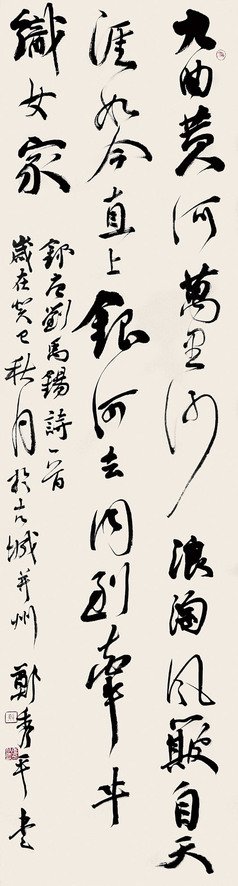 九曲黄河萬里沙浪淘風簸自天
涯如今直上銀河去同到牽牛
織女家
錄唐劉禹錫詩一首
歲在癸巳秋月於古城并州 鄭秀平書